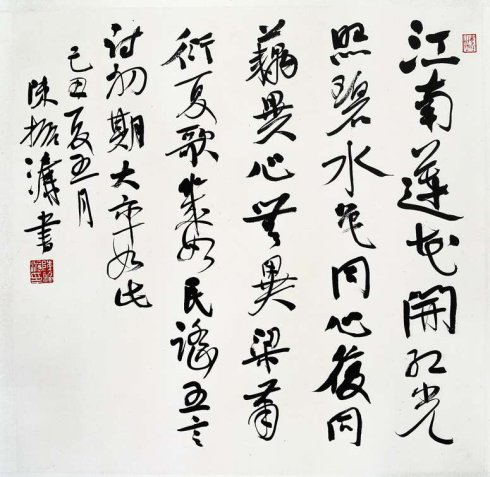 江南蓮花開紅光
照碧水色同心復同
藕異心無異梁蕭
衍夏歌如民謠五言
詩初期大率如此
己丑夏五月
陳振濂書